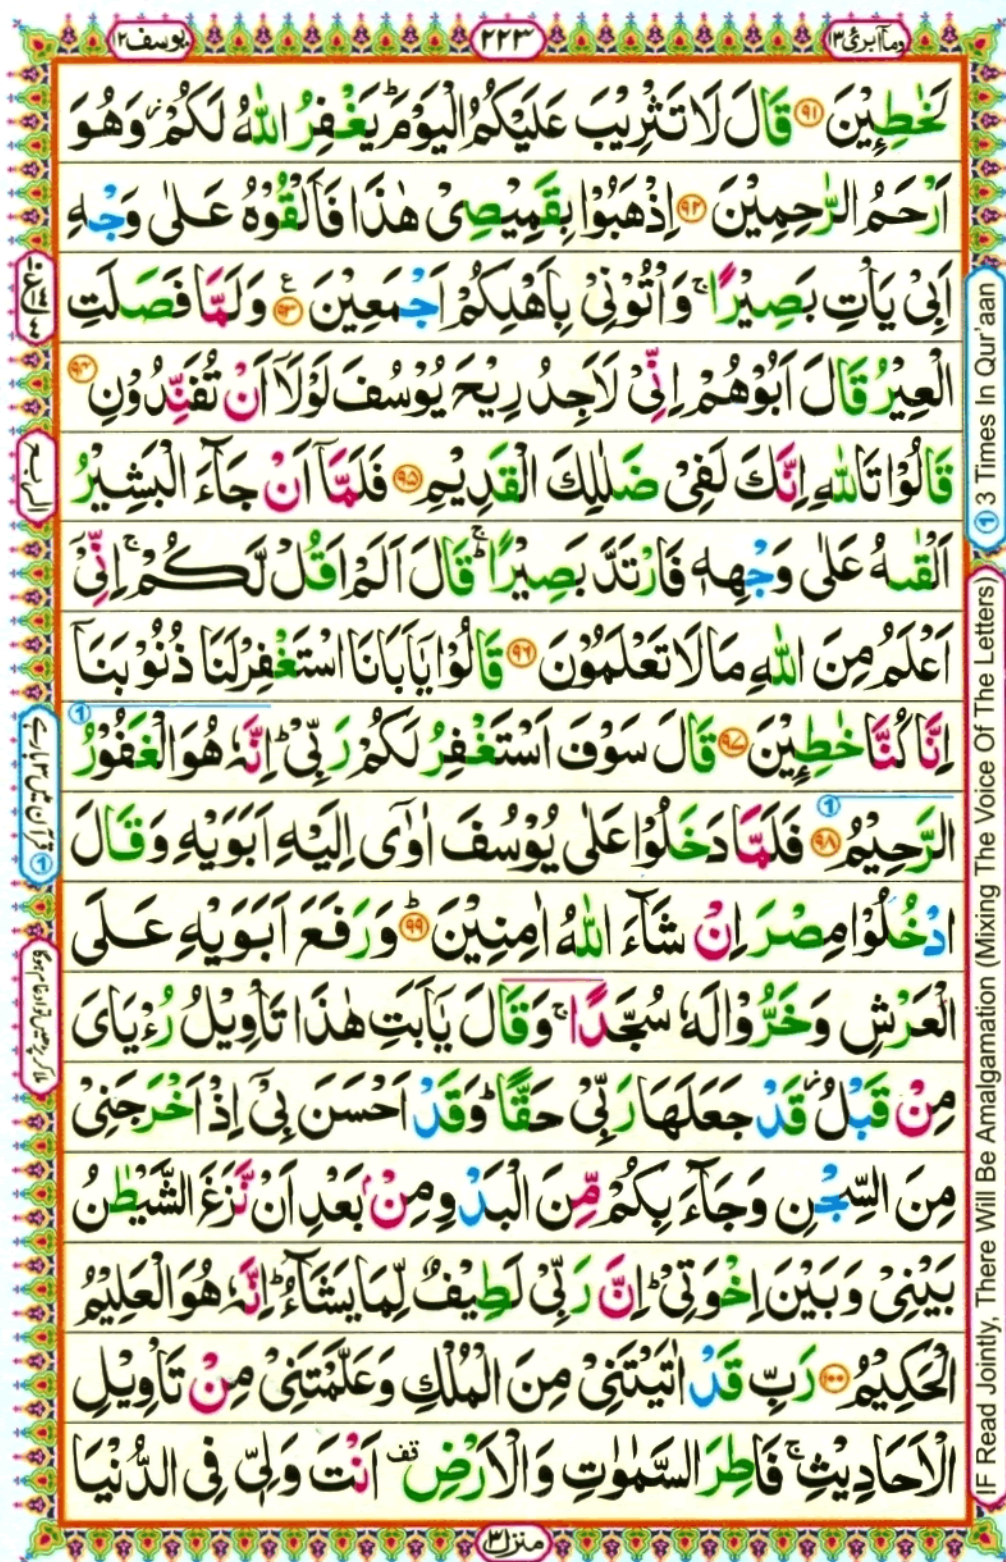 یوسف ۱۲
۲۲۳
ومآ ابرئ ۱۳
لَخٰطِـِٕیْنَ ﴿۹۱﴾ قَالَ لَا تَثْرِیْبَ عَلَیْكُمُ الْیَوْمَ ؕ یَغْفِرُ اللّٰهُ لَكُمْ ؗ وَهُوَ
اَرْحَمُ الرّٰحِمِیْنَ ﴿۹۲﴾ اِذْهَبُوْا بِقَمِیْصِیْ هٰذَا فَاَلْقُوْهُ عَلٰی وَجْهِ
اَبِیْ یَاْتِ بَصِیْرًا ۚ وَاْتُوْنِیْ بِاَهْلِكُمْ اَجْمَعِیْنَ ﴿۹۳﴾ ع وَلَمَّا فَصَلَتِ
الْعِیْرُ قَالَ اَبُوْهُمْ اِنِّیْ لَاَجِدُ رِیْحَ یُوْسُفَ لَوْلَاۤ اَنْ تُفَنِّدُوْنِ ﴿۹۴﴾
قَالُوْا تَاللّٰهِ اِنَّكَ لَفِیْ ضَلٰلِكَ الْقَدِیْمِ ﴿۹۵﴾ فَلَمَّاۤ اَنْ جَآءَ الْبَشِیْرُ
اَلْقٰىهُ عَلٰی وَجْهِهٖ فَارْتَدَّ بَصِیْرًا ۚؕ قَالَ اَلَمْ اَقُلْ لَّكُمْ ۚ اِنِّیْۤ
اَعْلَمُ مِنَ اللّٰهِ مَا لَا تَعْلَمُوْنَ ﴿۹۶﴾ قَالُوْا یٰۤاَبَانَا اسْتَغْفِرْلَنَا ذُنُوْبَنَاۤ
اِنَّا كُنَّا خٰطِـِٕیْنَ ﴿۹۷﴾ قَالَ سَوْفَ اَسْتَغْفِرُ لَكُمْ رَبِّیْ ؕ اِنَّهٗ هُوَ الْغَفُوْرُ ①
الرَّحِیْمُ ﴿۹۸﴾ ① فَلَمَّا دَخَلُوْا عَلٰی یُوْسُفَ اٰوٰۤی اِلَیْهِ اَبَوَیْهِ وَقَالَ
ادْخُلُوْا مِصْرَ اِنْ شَآءَ اللّٰهُ اٰمِنِیْنَ ؕ﴿۹۹﴾ وَرَفَعَ اَبَوَیْهِ عَلَی
الْعَرْشِ وَخَرُّوْا لَهٗ سُجَّدًا ۚ وَقَالَ یٰۤاَبَتِ هٰذَا تَاْوِیْلُ رُءْیَایَ
مِنْ قَبْلُ ؗ قَدْ جَعَلَهَا رَبِّیْ حَقًّا ؕ وَقَدْ اَحْسَنَ بِیْۤ اِذْ اَخْرَجَنِیْ
مِنَ السِّجْنِ وَجَآءَ بِكُمْ مِّنَ الْبَدْوِ مِنْۢ بَعْدِ اَنْ نَّزَغَ الشَّیْطٰنُ
بَیْنِیْ وَبَیْنَ اِخْوَتِیْ ؕ اِنَّ رَبِّیْ لَطِیْفٌ لِّمَا یَشَآءُ ؕ اِنَّهٗ هُوَ الْعَلِیْمُ
الْحَكِیْمُ ﴿۱۰۰﴾ رَبِّ قَدْ اٰتَیْتَنِیْ مِنَ الْمُلْكِ وَعَلَّمْتَنِیْ مِنْ تَاْوِیْلِ
الْاَحَادِیْثِ ۚ فَاطِرَ السَّمٰوٰتِ وَالْاَرْضِ قف اَنْتَ وَلِیّٖ فِی الدُّنْیَا
منزل ۳
الربع
① قرآن میں ۳ بار ہے
ملا کر پڑھیں تو ادغام ہوگا
① 3 Times In Qur'aan
IF Read Jointly, There Will Be Amalgamation (Mixing The Voice Of The Letters)